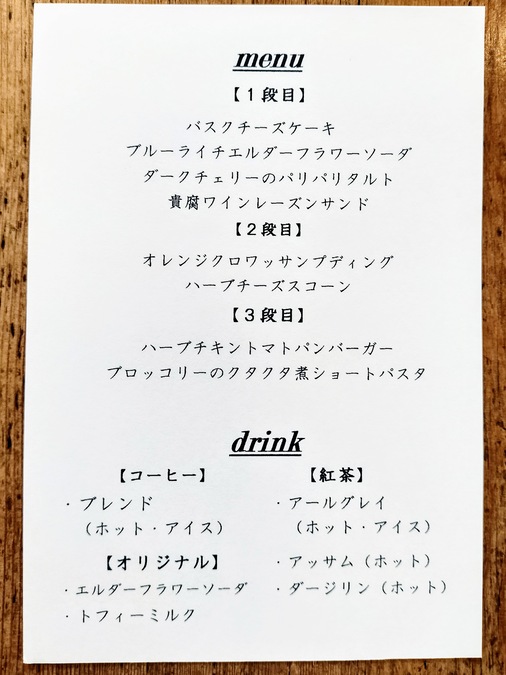 menu
【1段目】
バスクチーズケーキ
ブルーライチエルダーフラワーソーダ
ダークチェリーのパリパリタルト
貴腐ワインレーズンサンド
【2段目】
オレンジクロワッサンプディング
ハーブチーズスコーン
【3段目】
ハーブチキントマトパンバーガー
ブロッコリーのクタクタ煮ショートパスタ
drink
【コーヒー】
・ブレンド
（ホット・アイス）
【オリジナル】
・エルダーフラワーソーダ
・トフィーミルク
【紅茶】
・アールグレイ
（ホット・アイス）
・アッサム（ホット）
・ダージリン（ホット）